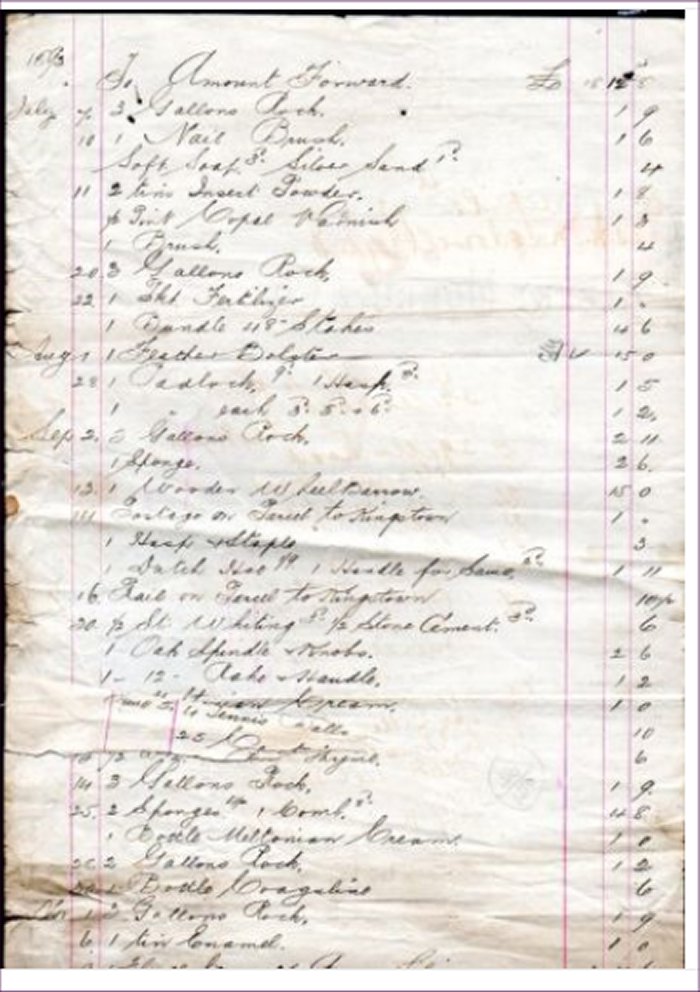 To Amount Forward. £
July 7 3 Gallons Rock. 1 9
10 1 Nail Brush. 1 6
Soft Soap 3d. Silver Sand 1d. 4
11 2 tins Insect Powder. 1 8
Pint Copal Varnish 1 3
1 Brush. 4
20 3 Gallons Rock. 1 9
22 1 Fertilizer 1 -
1 Bundle 48" Stakes 4 6
Aug 1 1 Feather Bolster 15 0
28 1 Padlock, 9d. 1 Hasp. 1 5
1 " each 1 2.
Sep 2. 5 Gallons Rock. 2 11
1 Sponge. 2 6.
13. 1 Wooden Wheelbarrow. 15 0
Postage on Parcel to Kingstown 1 -
1 Hasp & Staple 3
1 Dutch Hoe 1/9 1 Handle for Same, 1 11
16. Rail on Parcel to Kingstown 10½
20. ½ St. Whiting ½ Stone Cement. 3d. 6
1 Oak Spindle & Knobs. 2 6
1 - 12 - Rake & Handle. 1 2
Cream. 1 0
Tennis
10
6
14 3 Gallons Rock. 1 9.
25. 2 Sponges 1 Comb. 4 8
1 Bottle Meltonian Cream. 1 0
2 Gallons Rock. 1 2
1 Bottle Coagaline 6
3 Gallons Rock. 1 9
6. 1 tin Enamel. 1 0